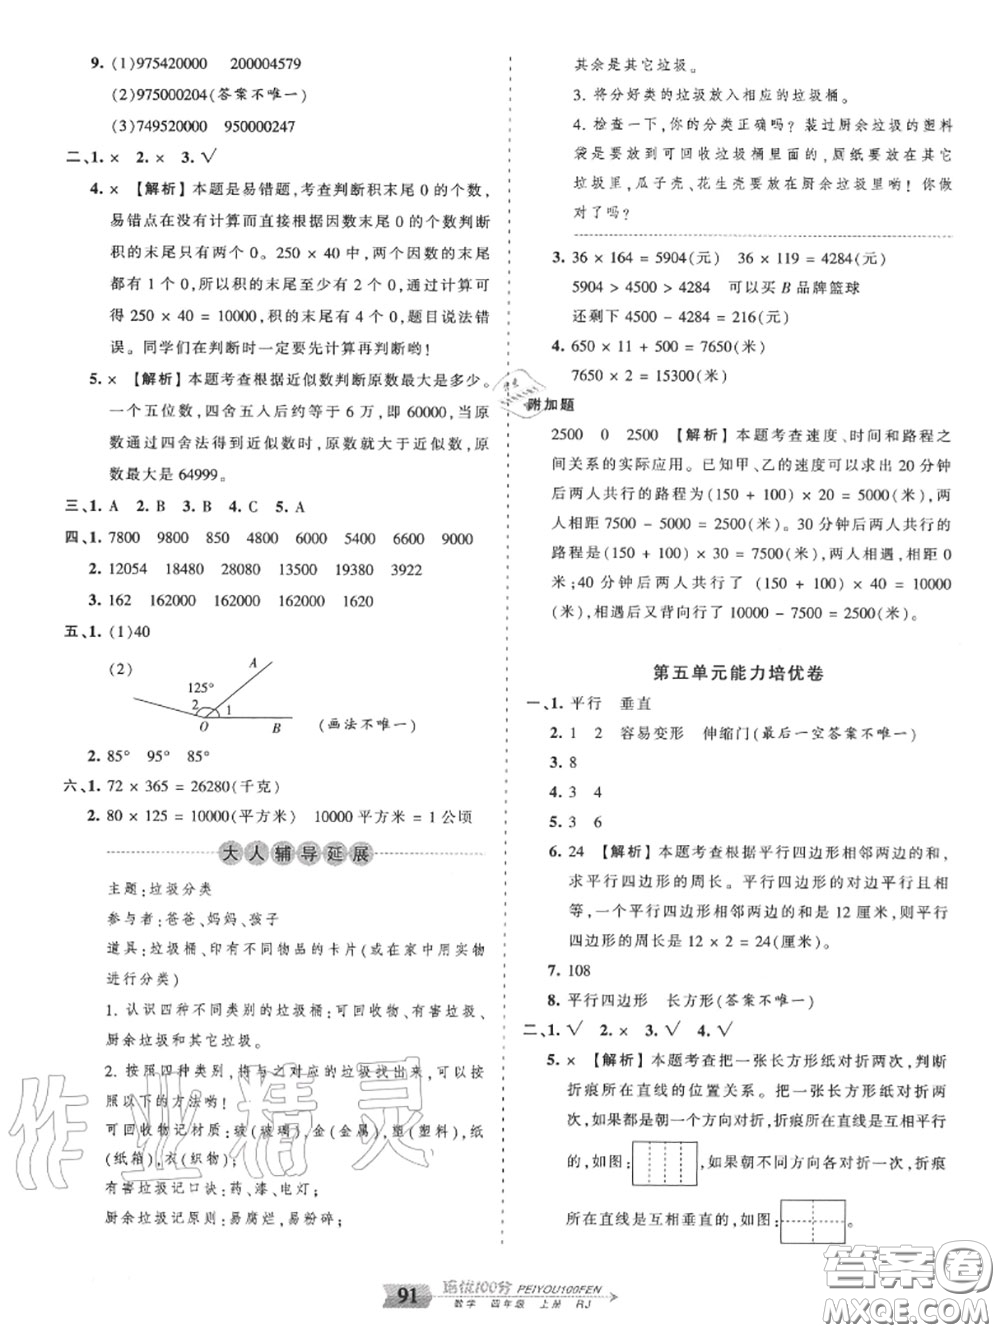 9. (1)975420000　200004579
(2)975000204(答案不唯一)
(3)749520000　950000247
二、1. ×　2. ×　3. √
4. ×　【解析】本题是易错题,考查判断积末尾 0 的个数,
易错点在没有计算而直接根据因数末尾 0 的个数判断
积的末尾只有两个 0。250 × 40 中,两个因数的末尾
都有 1 个 0,所以积的末尾至少有 2 个 0,通过计算可
得 250 × 40 = 10000,积的末尾有 4 个 0,题目说法错
误。同学们在判断时一定要先计算再判断哟!
5. ×　【解析】本题考查根据近似数判断原数最大是多少。
一个五位数,四舍五入后约等于 6 万,即 60000,当原
数通过四舍法得到近似数时,原数就大于近似数,原
数最大是 64999。
三、1. A　2. B　3. B　4. C　5. A
四、1. 7800　9800　850　4800　6000　6600　9000
2. 12054　18480　28080　13500　19380　3922
3. 162　162000　162000　162000　1620
五、1. (1)40
(2)
A
125°
2
1
O
B
(画法不唯一)
2. 85°　95°　85°
六、1. 72 × 365 = 26280(千克)
2. 80 × 125 = 10000(平方米)　10000平方米 = 1 公顷
大人辅导延展
主题:垃圾分类
参与者:爸爸、妈妈、孩子
道具:垃圾桶、印有不同物品的卡片(或在家中用实物
进行分类)
1. 认识四种不同类别的垃圾桶:可回收物、有害垃圾、
厨余垃圾和其它垃圾。
2. 按照四种类别,将与之对应的垃圾找出来,可以按
照以下的方法哟!
可回收物记材质:玻(玻璃),金(金属),塑(塑料),纸
(纸箱),衣(织物);
有害垃圾记口诀:药、漆、电灯;
厨余垃圾记原则:易腐烂,易粉碎;
其余是其它垃圾。
3. 将分好类的垃圾放入相应的垃圾桶。
4. 检查一下,你的分类正确吗?装过厨余垃圾的塑料
袋是要放到可回收垃圾桶里面的,厕纸要放在其它
垃圾里,瓜子壳、花生壳要放在厨余垃圾里哟!你做
对了吗?
3. 36 × 164 = 5904(元)　36 × 119 = 4284(元)
5904 > 4500 > 4284　可以买 B 品牌篮球
还剩下 4500 - 4284 = 216(元)
4. 650 × 11 + 500 = 7650(米)
7650 × 2 = 15300(米)
附加题
2500　0　2500　【解析】本题考查速度、时间和路程之
间关系的实际应用。已知甲、乙的速度可以求出 20 分钟
后两人共行的路程为(150 + 100) × 20 = 5000(米),两
人相距 7500 - 5000 = 2500(米)。30 分钟后两人共行的
路程是(150 + 100) × 30 = 7500(米),两人相遇,相距 0
米;40 分钟后两人共行了 (150 + 100) × 40 = 10000
(米),相遇后又背向行了 10000 - 7500 = 2500(米)。
第五单元能力培优卷
一、1. 平行　垂直
2. 1　2　容易变形　伸缩门(最后一空答案不唯一)
3. 8
4. 3　4
5. 3　6
6. 24　【解析】本题考查根据平行四边形相邻两边的和,
求平行四边形的周长。平行四边形的对边平行且相
等,一个平行四边形相邻两边的和是 12 厘米,则平行
四边形的周长是 12 × 2 = 24(厘米)。
7. 108
8. 平行四边形　长方形(答案不唯一)
二、1. √　2. ×　3. √　4. √
5. ×　【解析】本题考查把一张长方形纸对折两次,判断
折痕所在直线的位置关系。把一张长方形纸对折两
次,如果都是朝一个方向对折,折痕所在直线是互相平行
的,如图:　,如果朝不同方向各对折一次,折痕
所在直线是互相垂直的,如图:　。
91　培优100分 PEIYOU100FEN
数学　四年级　上册　RJ
作业精灵
答案圈
MXQE.COM